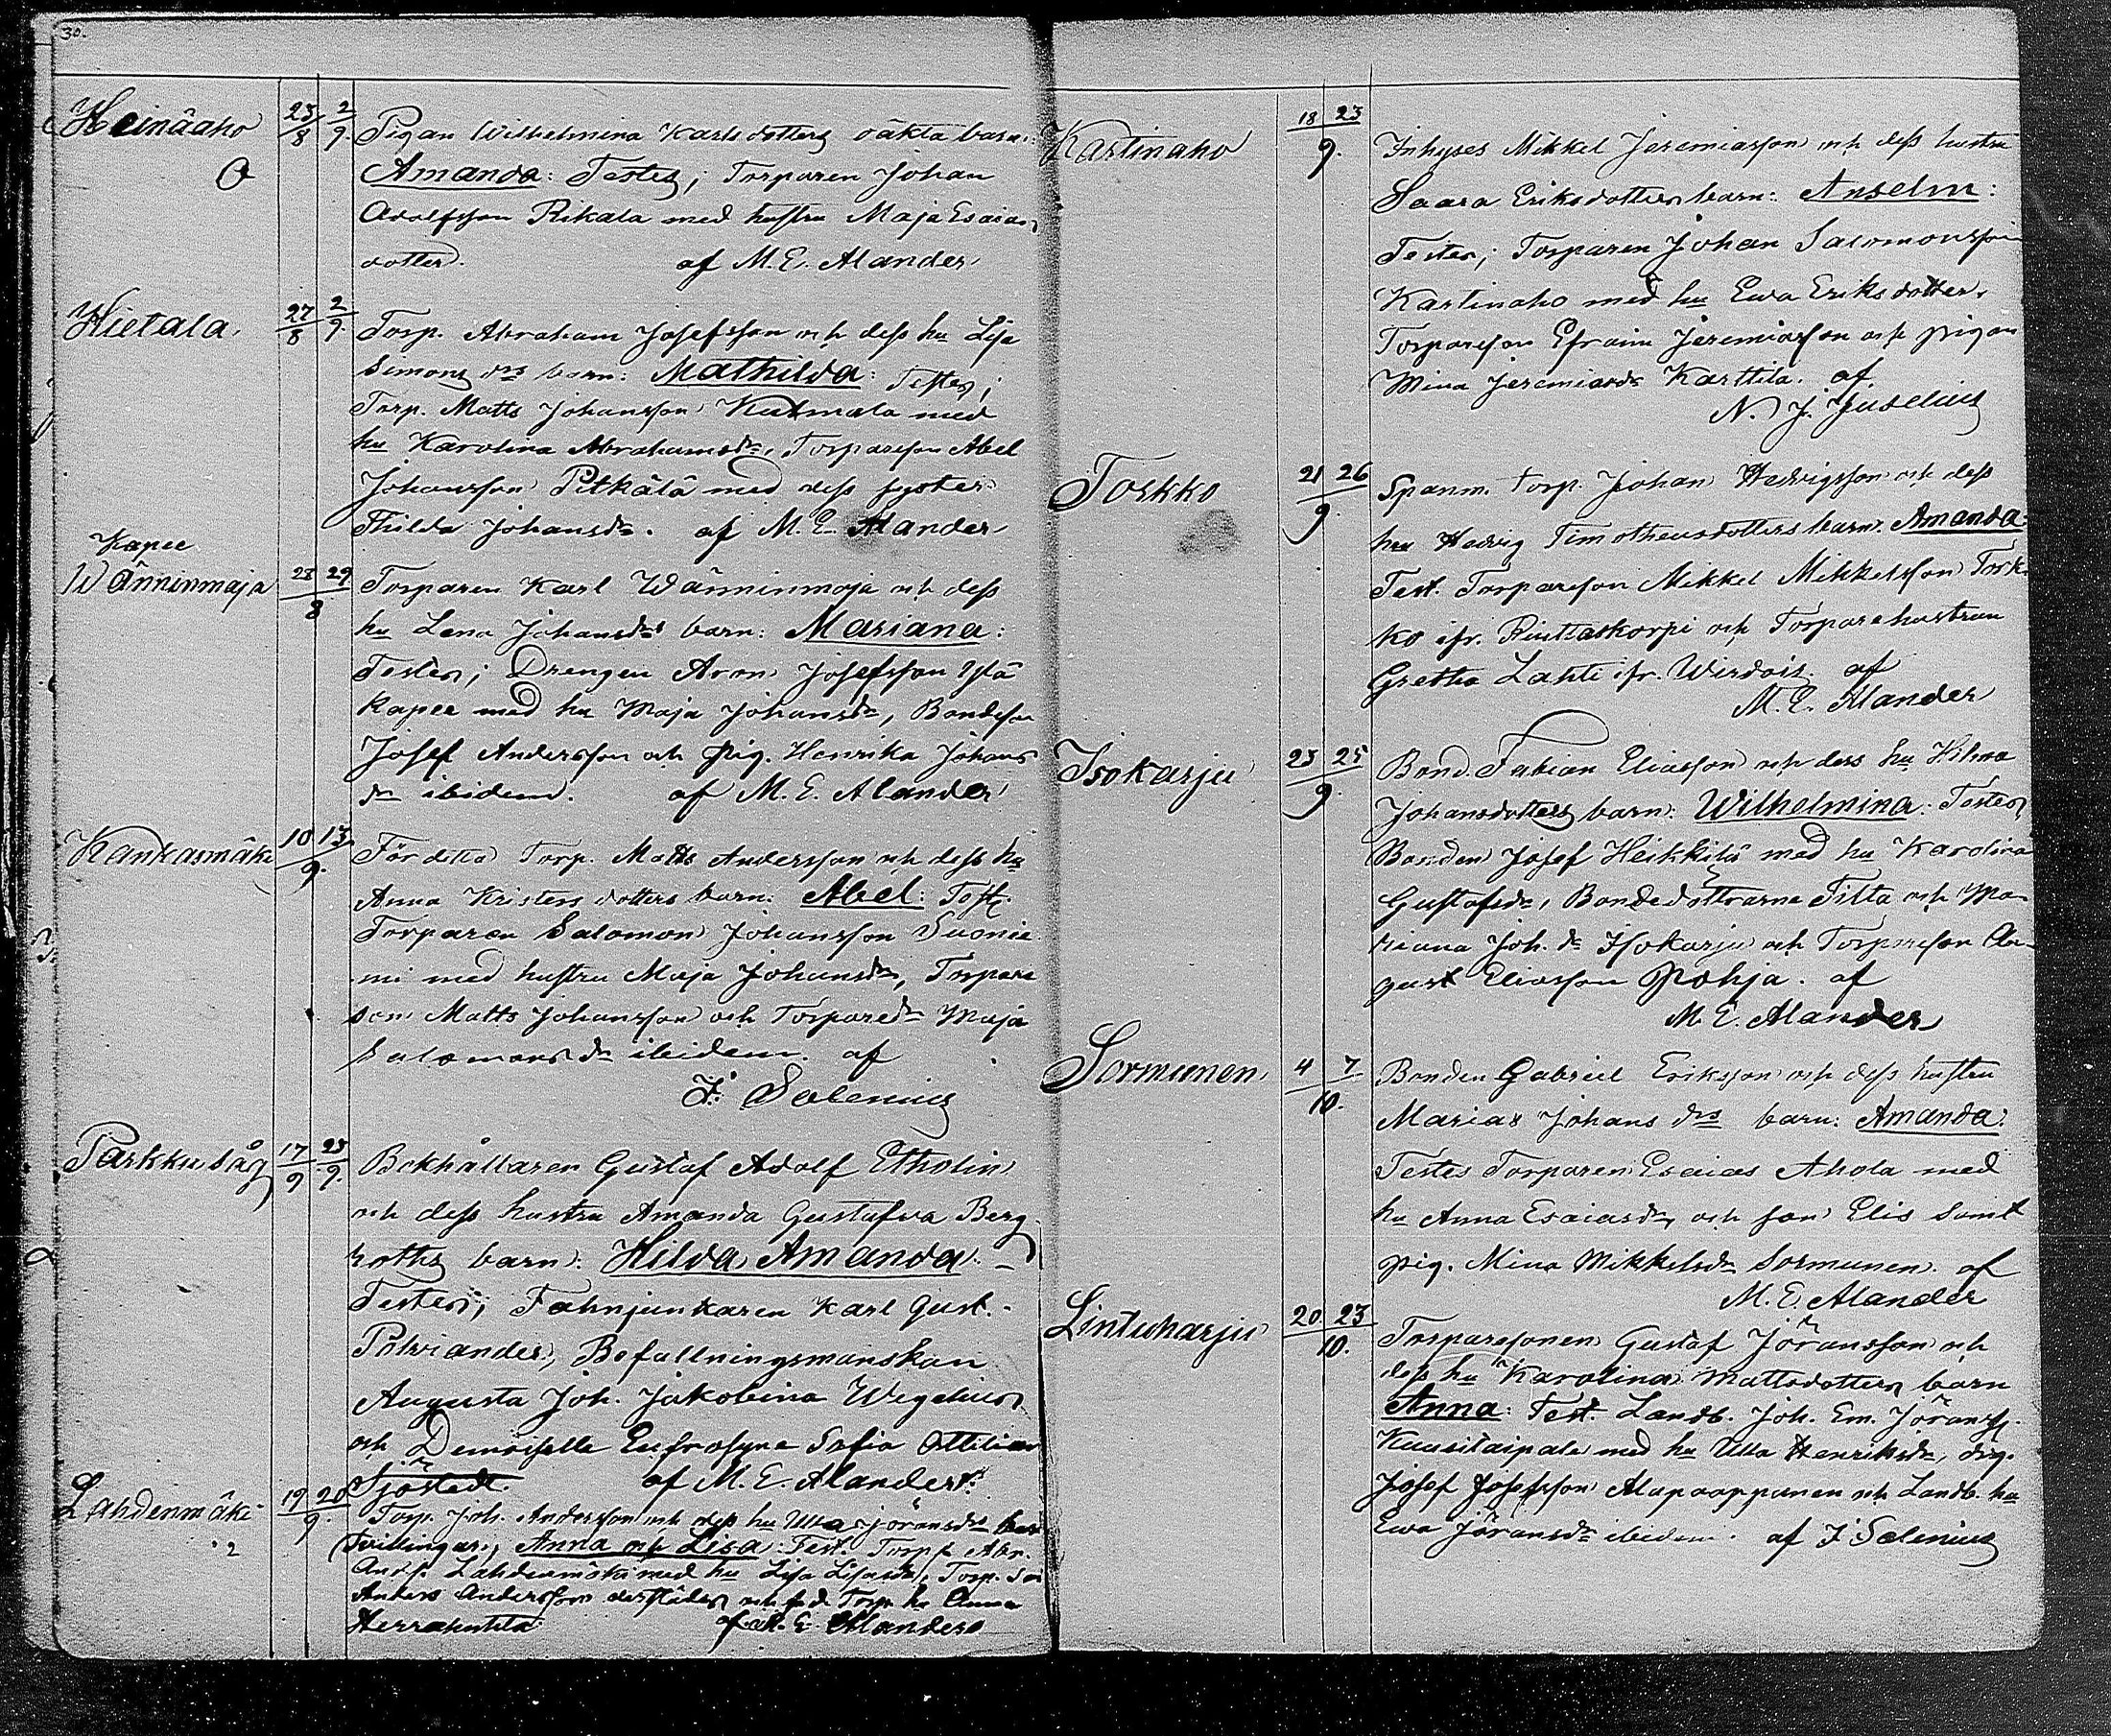 30.
Heinäaho 23/8 2/9. Pigan Wilhelmina Karlsdotters oäkta barn:
Amanda: Testes; Torparen Johan
Adolfsson Rikala med hustru Maja Esaias
dotter. af M. E. Alander
Hietala. 27/8 2/9. Torp. Abraham Josefsson och dess hu Lisa
Simons drs barn: Mathilda: Testes;
Torp. Matts Johansson Kulmala med
hu Karolina Abrahamsdr, Torpareson Abel
Johansson Pitkälä med dess syster
Thilda Johansdr. af M. E. Alander
Kapee
Wänninmaja 28 29/8 Torparen Karl Wänninmaja och dess
hu Lena Johansdrs barn: Mariana:
Testes; Drengen Aron Josefsson Ylä
kapee med hu Maja Johansdr, Bondeson
Josef Andersson och pig. Henrika Johans
dr ibidem. af M. E. Alander
Kankasmäki 10 13/9. Förditto Torp. Matts Andersson och dess hu
Anna Kristersdotters barn: Abel: Test.
Torparen Salomon Johansson Suonie
mi med hustru Maja Johansdr, Torpare
son Matts Johansson och Torparedr Maja
Salomonsdr ibidem. af
F. Salenius
Parkku såg 17/9 23/9. Bokhållaren Gustaf Adolf Etholin
och dess hustru Amanda Gustafva Berg
roths barn: Hilda Amanda:
Testes; Fahnjunkaren Karl Gust.
Polviander, Befallningsmanskan
Augusta Joh. Jakobina Wegelius
och Demoiselle Eufrosyne Sofia Ottiliana
Sjöstedt. af M. E. Alander.
Lahdenmäki 19 20/9. Torp. Joh. Andersson och dess hu Ulla Jöransdrs barn
2 Tvillingar, Anna och Lisa: Test. Torp. Abr.
Ands. Lahdenmäki med hu Lisa Lisasdr, Torp. son
Anders Andersson derstädes och f.d. Torp. hu Anna
Herrakuhtila af M. E. Alander
Kartinaho 18 23/9. Inhyses Mikkel Jeremiasson och dess hustru
Saara Eriksdotters barn: Anselm:
Testes; Torparen Johan Salomonsson
Kartinaho med hu Ewa Eriksdotter,
Torpareson Efraim Jeremiasson och pigan
Mina Jeremiasdr Karttila. af
N. J. Juselius
Torkko 21 26/9. Spanm. torp. Johan Hedvigsson och dess
hu Hedvig Timotheusdotters barn: Amanda:
Test. Torpareson Mikkel Mikkelsson Tork
ko ifr. Riuttaskorpi och Torparehustrun
Gretha Lahti ifr. Wirdois. af
M. E. Alander
Isokarju 23 25/9. Bond. Fabian Eliasson och dess hu Hilma
Johansdotters barn: Wilhelmina: Testes,
Bonden Josef Heikkilä med hu Karolina
Gustafsdr, Bondedöttrarne Tilta och Ma
riana Joh.dr Isokarju och Torpareson Au
gust Eliasson Pohja. af
M. E. Alander
Sormunen 4 7/10. Bonden Gabriel Eriksson och dess hustru
Marias Johans drs barn: Amanda:
Testes Torparen Esaias Ahola med
hu Anna Esaiasdr och son Elis samt
pig. Mina Mikkelsdr Sormunen. af
M. E. Alander
Lintuharju 20 23/10. Torparesonen Gustaf Jöransson och
dess hu Karolina Mattsdotters barn
Anna: Test. Landb. Joh. Em. Jöranss.
Kuusitaipale med hu Ulla Henriksdr, drg.
Josef Josefsson Alapoappanen och Landb. hu
Ewa Jöransdr ibidem. af F Salenius